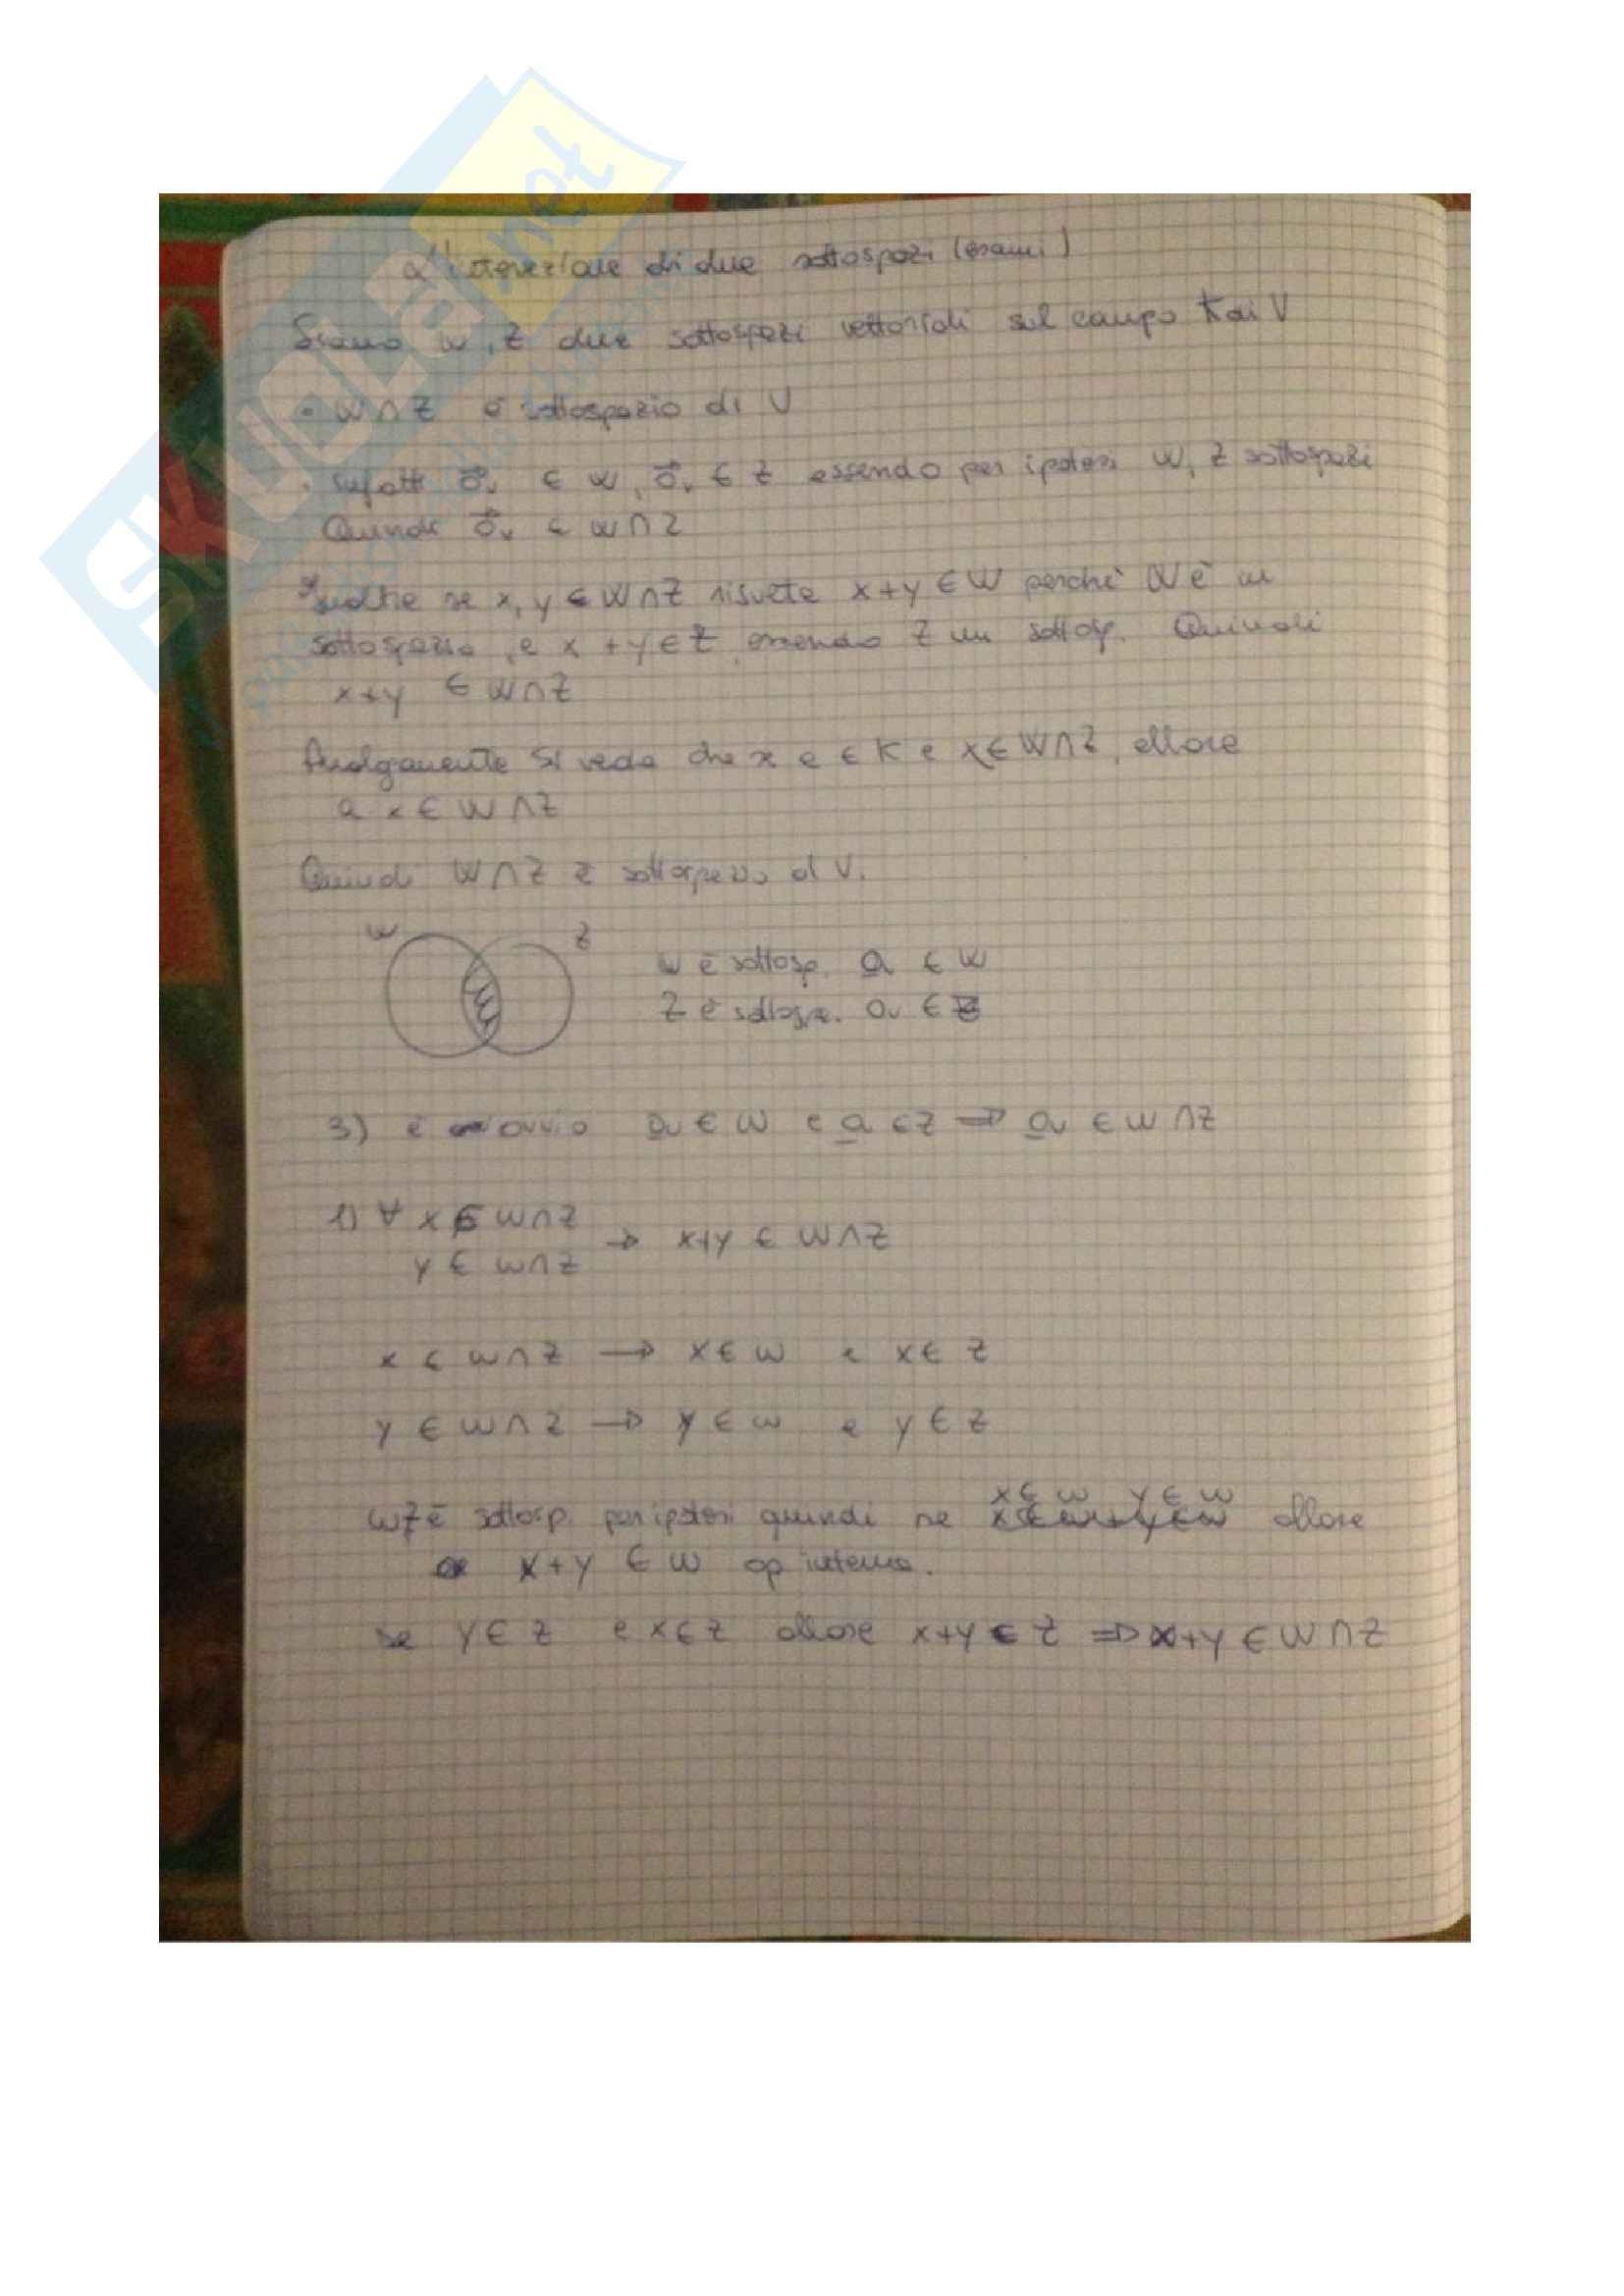 L'intersezione di due sottospazi (esami)
Siano W, Z due sottospazi vettoriali sul campo K di V
• W ∩ Z è sottospazio di V
• infatti 0⃗v ∈ W, 0⃗v ∈ Z essendo per ipotesi W, Z sottospazi
Quindi 0⃗v ∈ W ∩ Z
inoltre se x, y ∈ W ∩ Z risulta x + y ∈ W perchè W è un
sottospazio, e x + y ∈ Z, essendo Z un sottosp. Quindi
x+y ∈ W ∩ Z
Analogamente si vede che se a ∈ K e x ∈ W ∩ Z, allora
a x ∈ W ∩ Z
Quindi W ∩ Z è sottospazio di V.
W Z
W è sottosp. 0 ∈ W
Z è sottosp. 0v ∈ Z
3) è ovvio 0v ∈ W e 0 ∈ Z ⇒ 0v ∈ W ∩ Z
1) ∀ x ∈ W ∩ Z
y ∈ W ∩ Z → x+y ∈ W ∩ Z
x ∈ W ∩ Z → x ∈ W e x ∈ Z
y ∈ W ∩ Z → y ∈ W e y ∈ Z
x ∈ W y ∈ W
W Z è sottosp. per ipotesi quindi se allora
x + y ∈ W op interna.
se y ∈ Z e x ∈ Z allora x+y ∈ Z ⇒ x+y ∈ W ∩ Z
SKUOLA.net